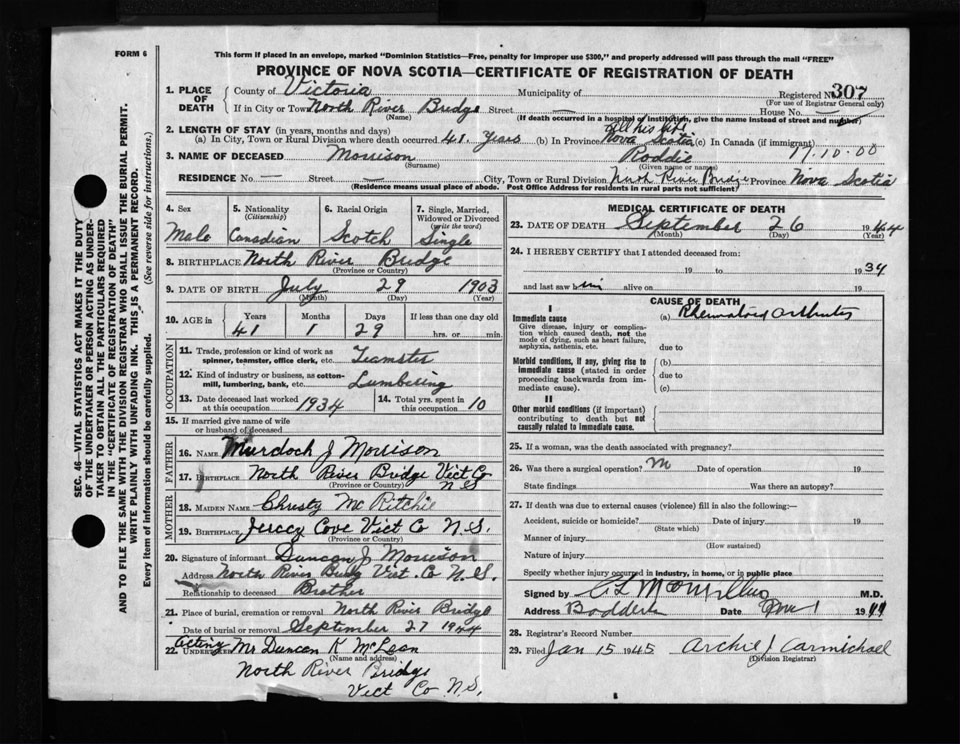 FORM 6
This form if placed in an envelope, marked "Dominion Statistics—Free, penalty for improper use $300," and properly addressed will pass through the mail "FREE"
PROVINCE OF NOVA SCOTIA—CERTIFICATE OF REGISTRATION OF DEATH
1. PLACE OF DEATH
County of Victoria Municipality of Registered No. 307
(For use of Registrar General only)
If in City or Town North River Bridge Street — House No. —
(Name) (If death occurred in a hospital or institution, give the name instead of street and number)
2. LENGTH OF STAY (in years, months and days) all his life
(a) In City, Town or Rural Division where death occurred 41. Years (b) In Province Nova Scotia (c) In Canada (if immigrant)
17.10.00
3. NAME OF DECEASED Morrison Roddie
(Surname) (Given name or names)
RESIDENCE No. — Street — City, Town or Rural Division North River Bridge Province Nova Scotia
(Residence means usual place of abode. Post Office Address for residents in rural parts not sufficient)
4. Sex Male
5. Nationality (Citizenship) Canadian
6. Racial Origin Scotch
7. Single, Married, Widowed or Divorced (write the word) Single
8. BIRTHPLACE North River Bridge
(Province or Country)
9. DATE OF BIRTH July 29 1903
(Month) (Day) (Year)
10. AGE in Years Months Days If less than one day old
41 1 29 hrs. or min.
OCCUPATION
11. Trade, profession or kind of work as spinner, teamster, office clerk, etc. Teamster
12. Kind of industry or business, as cotton-mill, lumbering, bank, etc. Lumbering
13. Date deceased last worked at this occupation 1934
14. Total yrs. spent in this occupation 10
15. If married give name of wife or husband of deceased
FATHER
16. NAME Murdoch J Morrison
17. BIRTHPLACE North River Bridge Vict Co N S
(Province or Country)
MOTHER
18. MAIDEN NAME Christy McRitchie
19. BIRTHPLACE Jercey Cove Vict Co N.S.
(Province or Country)
20. Signature of informant Duncan J Morrison
Address North River Bridg Vict. Co N.S.
Relationship to deceased Brother
21. Place of burial, cremation or removal North River Bridge
Date of burial or removal September 27 1944
acting
22. UNDERTAKER Mr Duncan K McLean
(Name and address)
North River Bridge
Vict Co N.S.
MEDICAL CERTIFICATE OF DEATH
23. DATE OF DEATH September 26 1944
(Month) (Day) (Year)
24. I HEREBY CERTIFY that I attended deceased from:
19 to 1934
and last saw him alive on 19
CAUSE OF DEATH
I
Immediate cause (a) Rheumatoid arthritis
Give disease, injury or complication which caused death, not the mode of dying, such as heart failure, asphyxia, asthenia, etc.
due to
Morbid conditions, if any, giving rise to immediate cause (stated in order proceeding backwards from immediate cause).
(b)
due to
(c)
II
Other morbid conditions (if important) contributing to death but not causally related to immediate cause.
25. If a woman, was the death associated with pregnancy?
26. Was there a surgical operation? Date of operation 19
State findings Was there an autopsy?
27. If death was due to external causes (violence) fill in also the following:—
Accident, suicide or homicide? Date of injury 19
(State which)
Manner of injury
(How sustained)
Nature of injury
Specify whether injury occurred in industry, in home, or in public place
Signed by M.D.
Address Date 1944
28. Registrar's Record Number
29. Filed Jan 15 1945 Archie J Carmichael
(Division Registrar)
SEC. 46—VITAL STATISTICS ACT MAKES IT THE DUTY
OF THE UNDERTAKER OR PERSON ACTING AS UNDER-
TAKER TO OBTAIN ALL THE PARTICULARS REQUIRED
IN THE "CERTIFICATE OF REGISTRATION OF DEATH"
AND TO FILE THE SAME WITH THE DIVISION REGISTRAR WHO SHALL ISSUE THE BURIAL PERMIT.
WRITE PLAINLY WITH UNFADING INK. THIS IS A PERMANENT RECORD.
Every item of information should be carefully supplied. (See reverse side for instructions.)